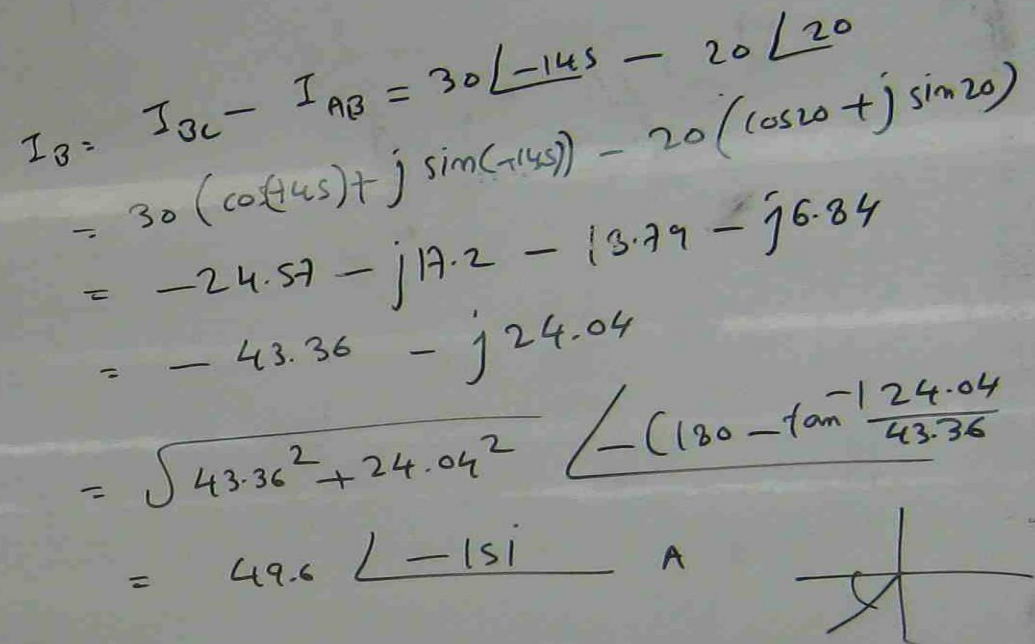 I_B = I_BC - I_AB = 30∠-145 - 20∠20
= 30 (cos(-145) + j sin(-145)) - 20 (cos20 + j sin20)
= -24.57 - j17.2 - 18.79 - j6.84
= - 43.36 - j24.04
= √(43.36² + 24.04²) ∠-(180 - tan⁻¹ 24.04/43.36
= 49.6 ∠-151 A